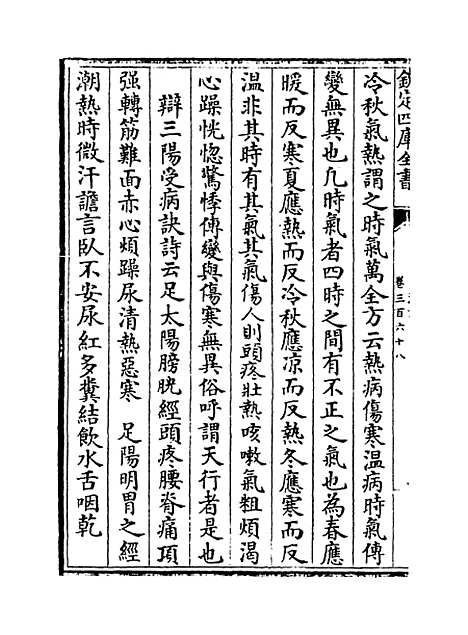 欽定四庫全書
卷三百六十八
冷秋氣熱謂之時氣萬全方云熱病傷寒温病時氣傳
變無異也凢時氣者四時之間有不正之氣也為春應
暖而反寒夏應熱而反冷秋應凉而反熱冬應寒而反
温非其時有其氣其氣傷人則頭疼壯熱咳嗽氣粗煩渴
心躁恍惚驚悸傳變與傷寒無異俗呼謂天行者是也
辯三陽受病訣詩云足太陽膀胱經頭疼腰脊痛項
强轉筋難面赤心煩躁尿清熱惡寒 足陽明胃之經
潮熱時微汗譫言臥不安尿紅多糞結飲水舌咽乾